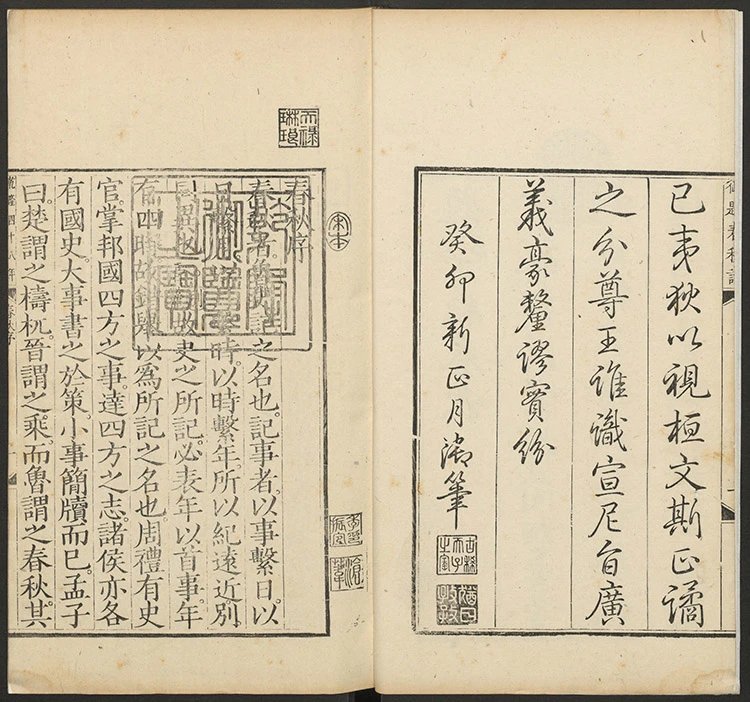 御題春秋說
已夷狄以視桓文斯正譎
之分尊王誰識宣尼旨廣
義豪釐謬實紛
癸卯新正月御筆
古稀天子之寶
猶日孜孜
天祿琳琅
春秋序
春秋者魯史記之名也記事者以事繫日以
日繫月以月繫時以時繫年所以紀遠近別
同異也故史之所記必表年以首事年
有四時故錯舉以為所記之名也周禮有史
官掌邦國四方之事達四方之志諸侯亦各
有國史大事書之於策小事簡牘而已孟子
曰楚謂之檮杌晉謂之乘而魯謂之春秋其
乾隆四十八年
春秋序